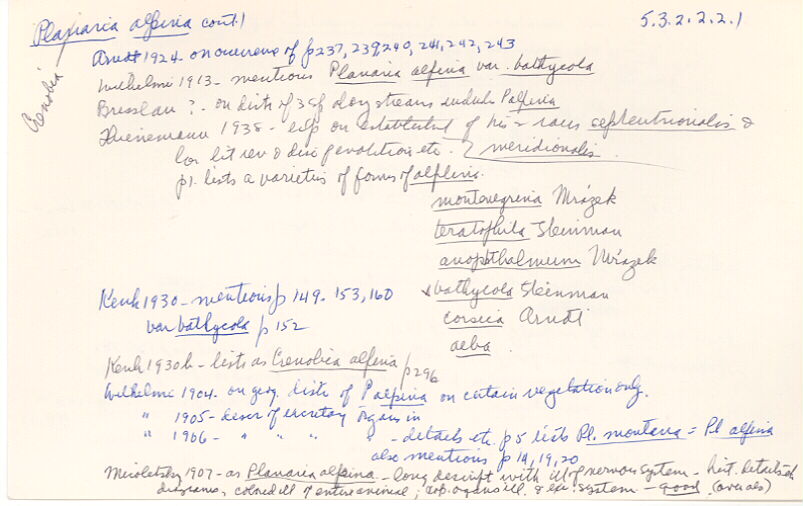 Planaria alpina cont.)
5.3.2.2.2.1
Crenobia
Arndt 1924 - on occurence of p237, 239, 240, 241, 242, 243
Wilhelmi 1913 - mentions Planaria alpina var. bathycola
Bresslau ? - on distr of 3 sp along streams includ. P alpina
Thienemann 1938 - esp on of his 2 races septentrionalis &
for lit rev & disc of evolution etc. meridionalis
p1. lists a varieties of forms of alpina.
montenegrina Mrázek
teratophila Steinman
anopthalmum Mrázek
bathycola Steinman
corsica Arndt
alba
Kenk 1930 - mentions p 149. 153, 160
var bathycola p 152
Kenk 1930b - lists as Crenobia alpina p296
Wilhelmi 1904 - on geog. distr of P alpina on certain vegetation only.
" 1905 - descr of excretory organs in
" 1906 - " " " " - details etc. p5 lists Pl. montana = Pl alpina
also mentions p 14, 19, 20
Micoletzky 1907 - as Planaria alpina - long descript with ill of nervous system - hist. details &
diagrams, colored ill of entire animal; rep. organs ill. & ex. system - good (ovaries)